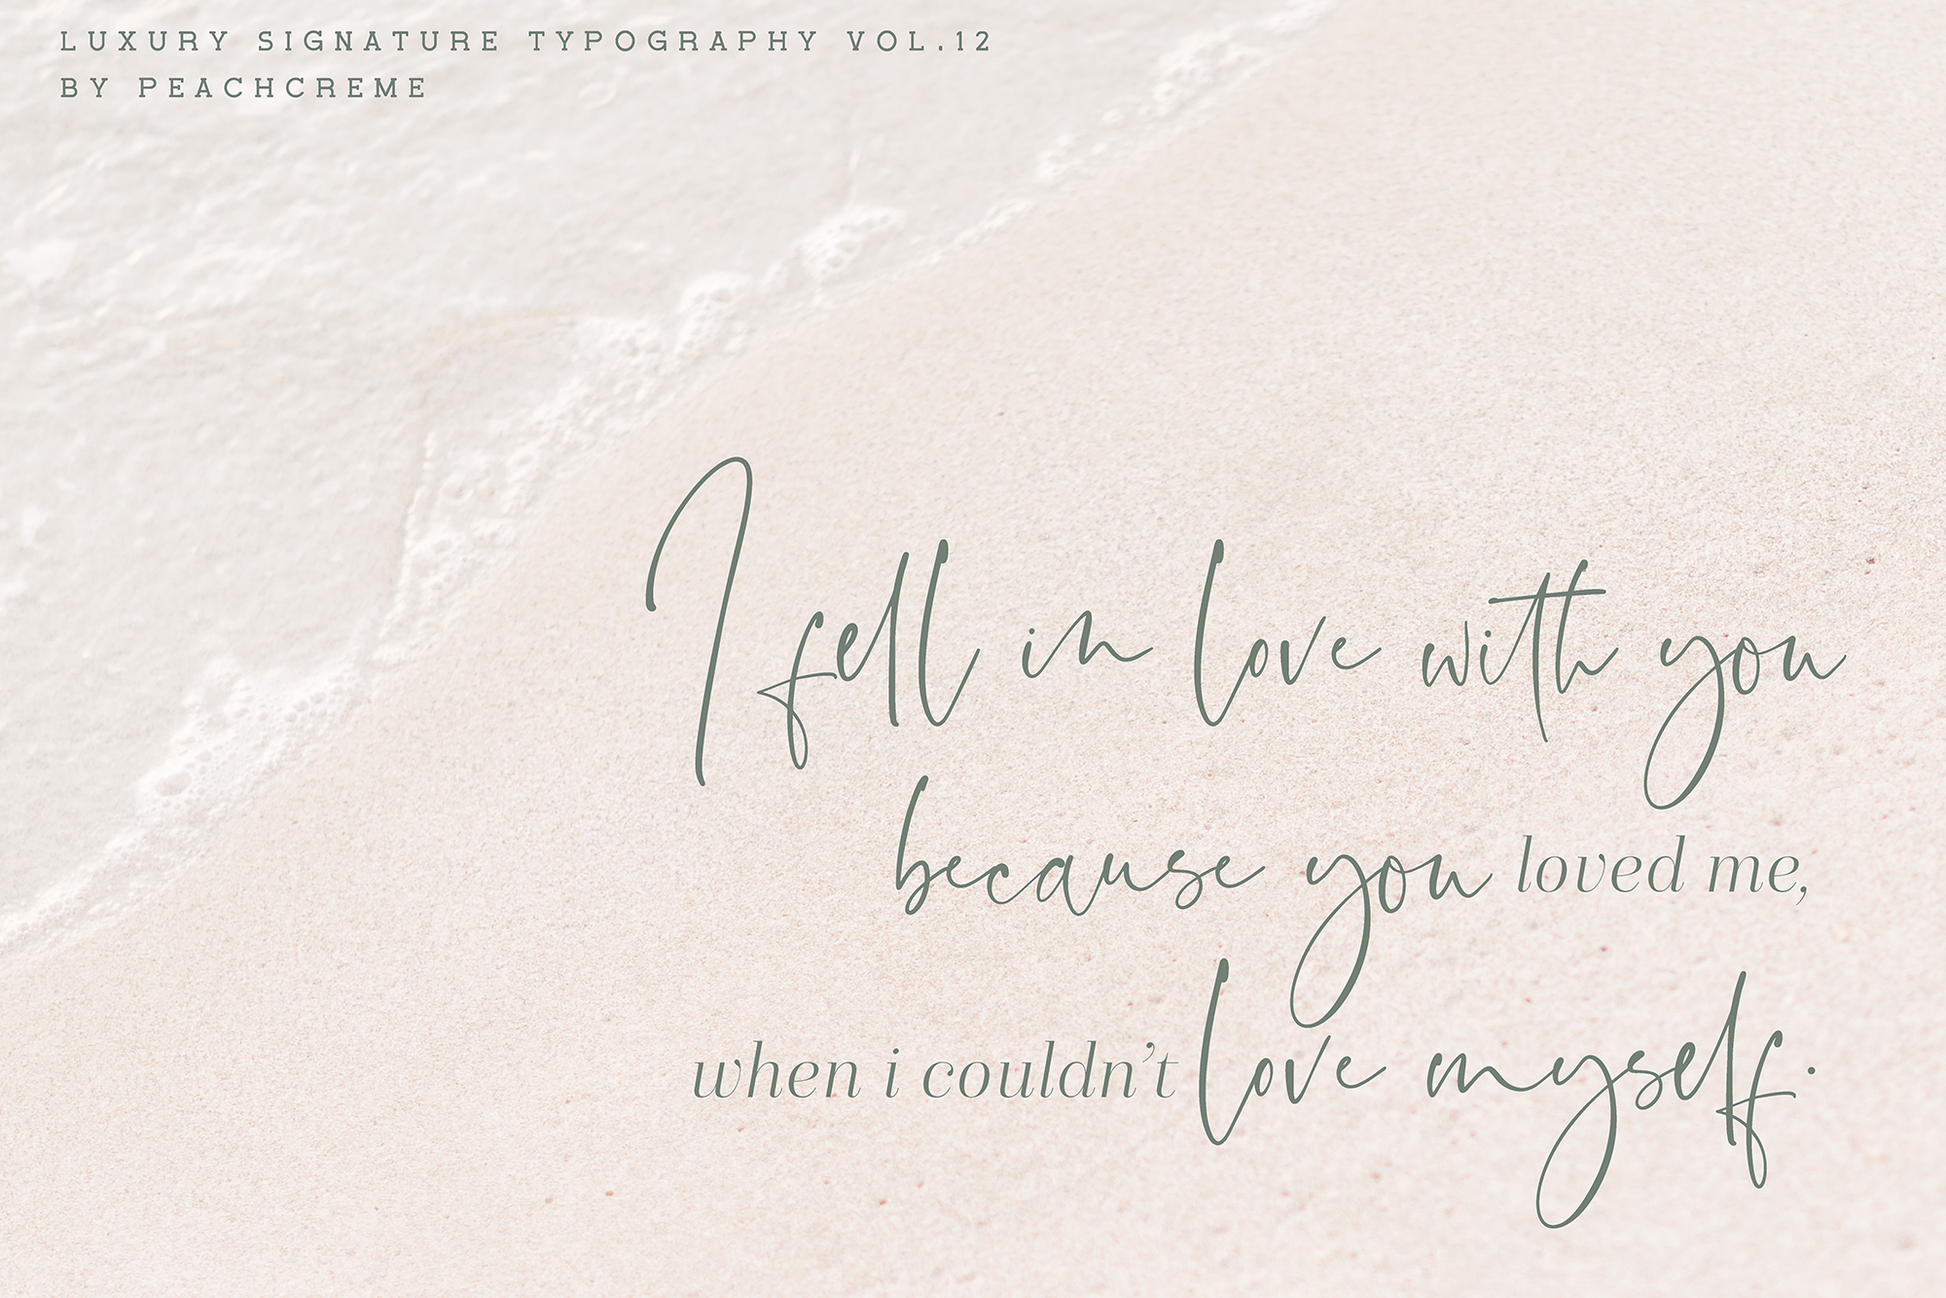 LUXURY SIGNATURE TYPOGRAPHY VOL.12
BY PEACHCREME
I fell in love with you
because you loved me,
when i couldn't love myself.